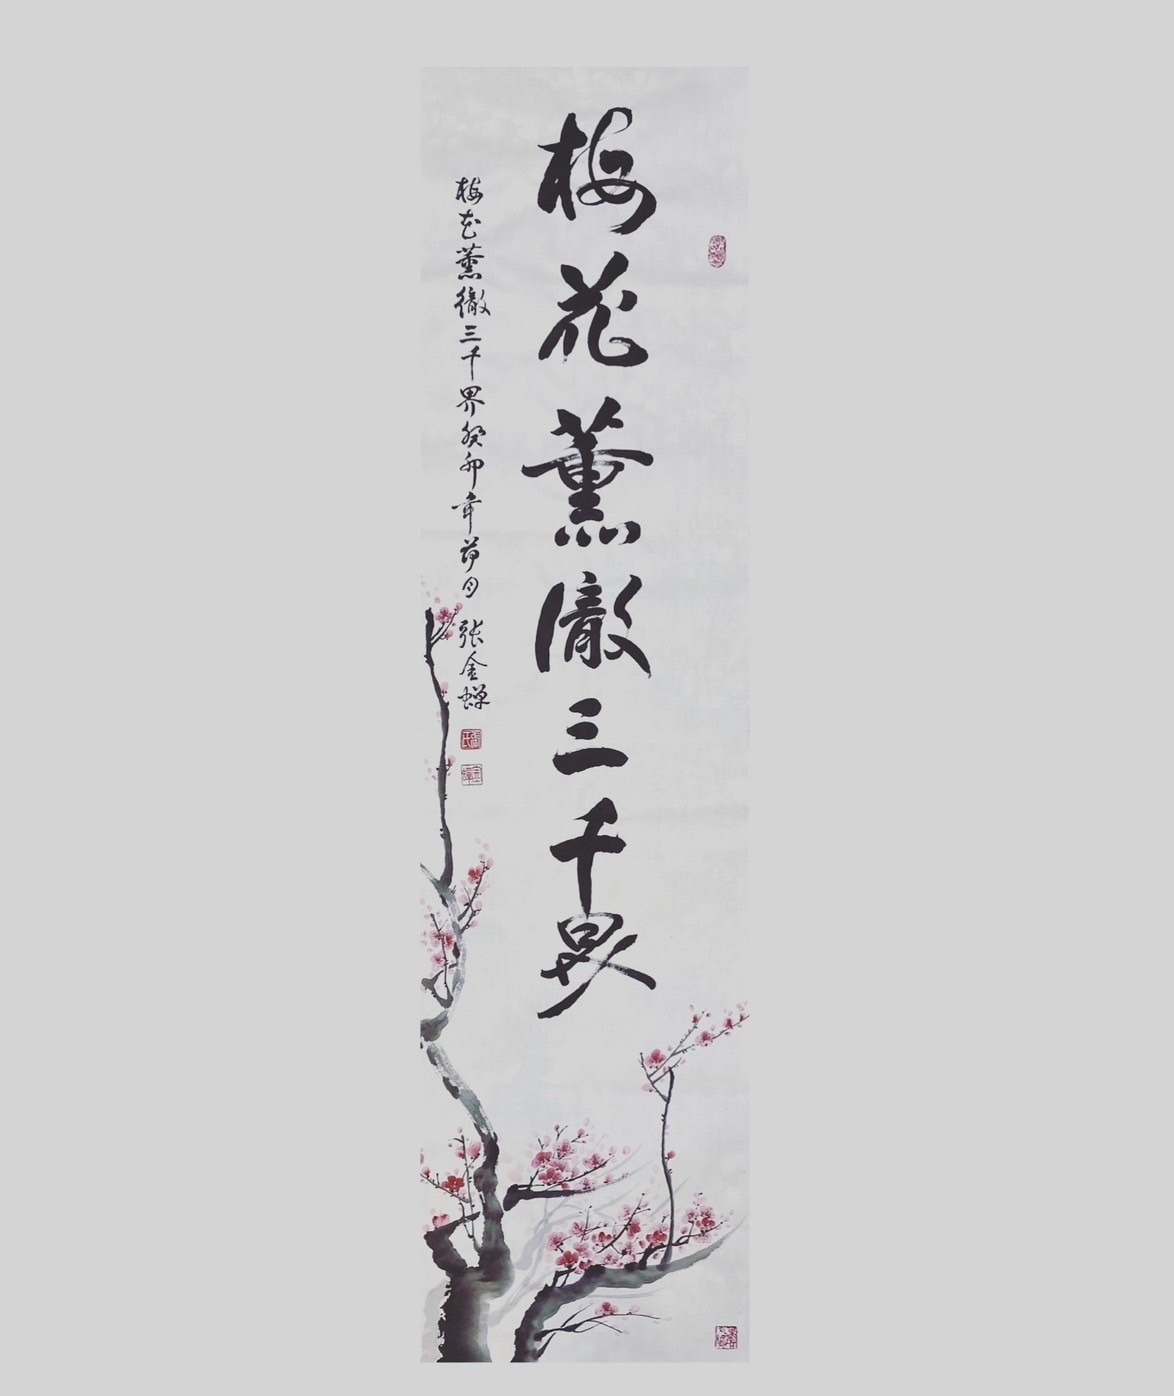 梅花薰徹三千界
梅花薰徹三千界癸卯年荷月
張金蟬